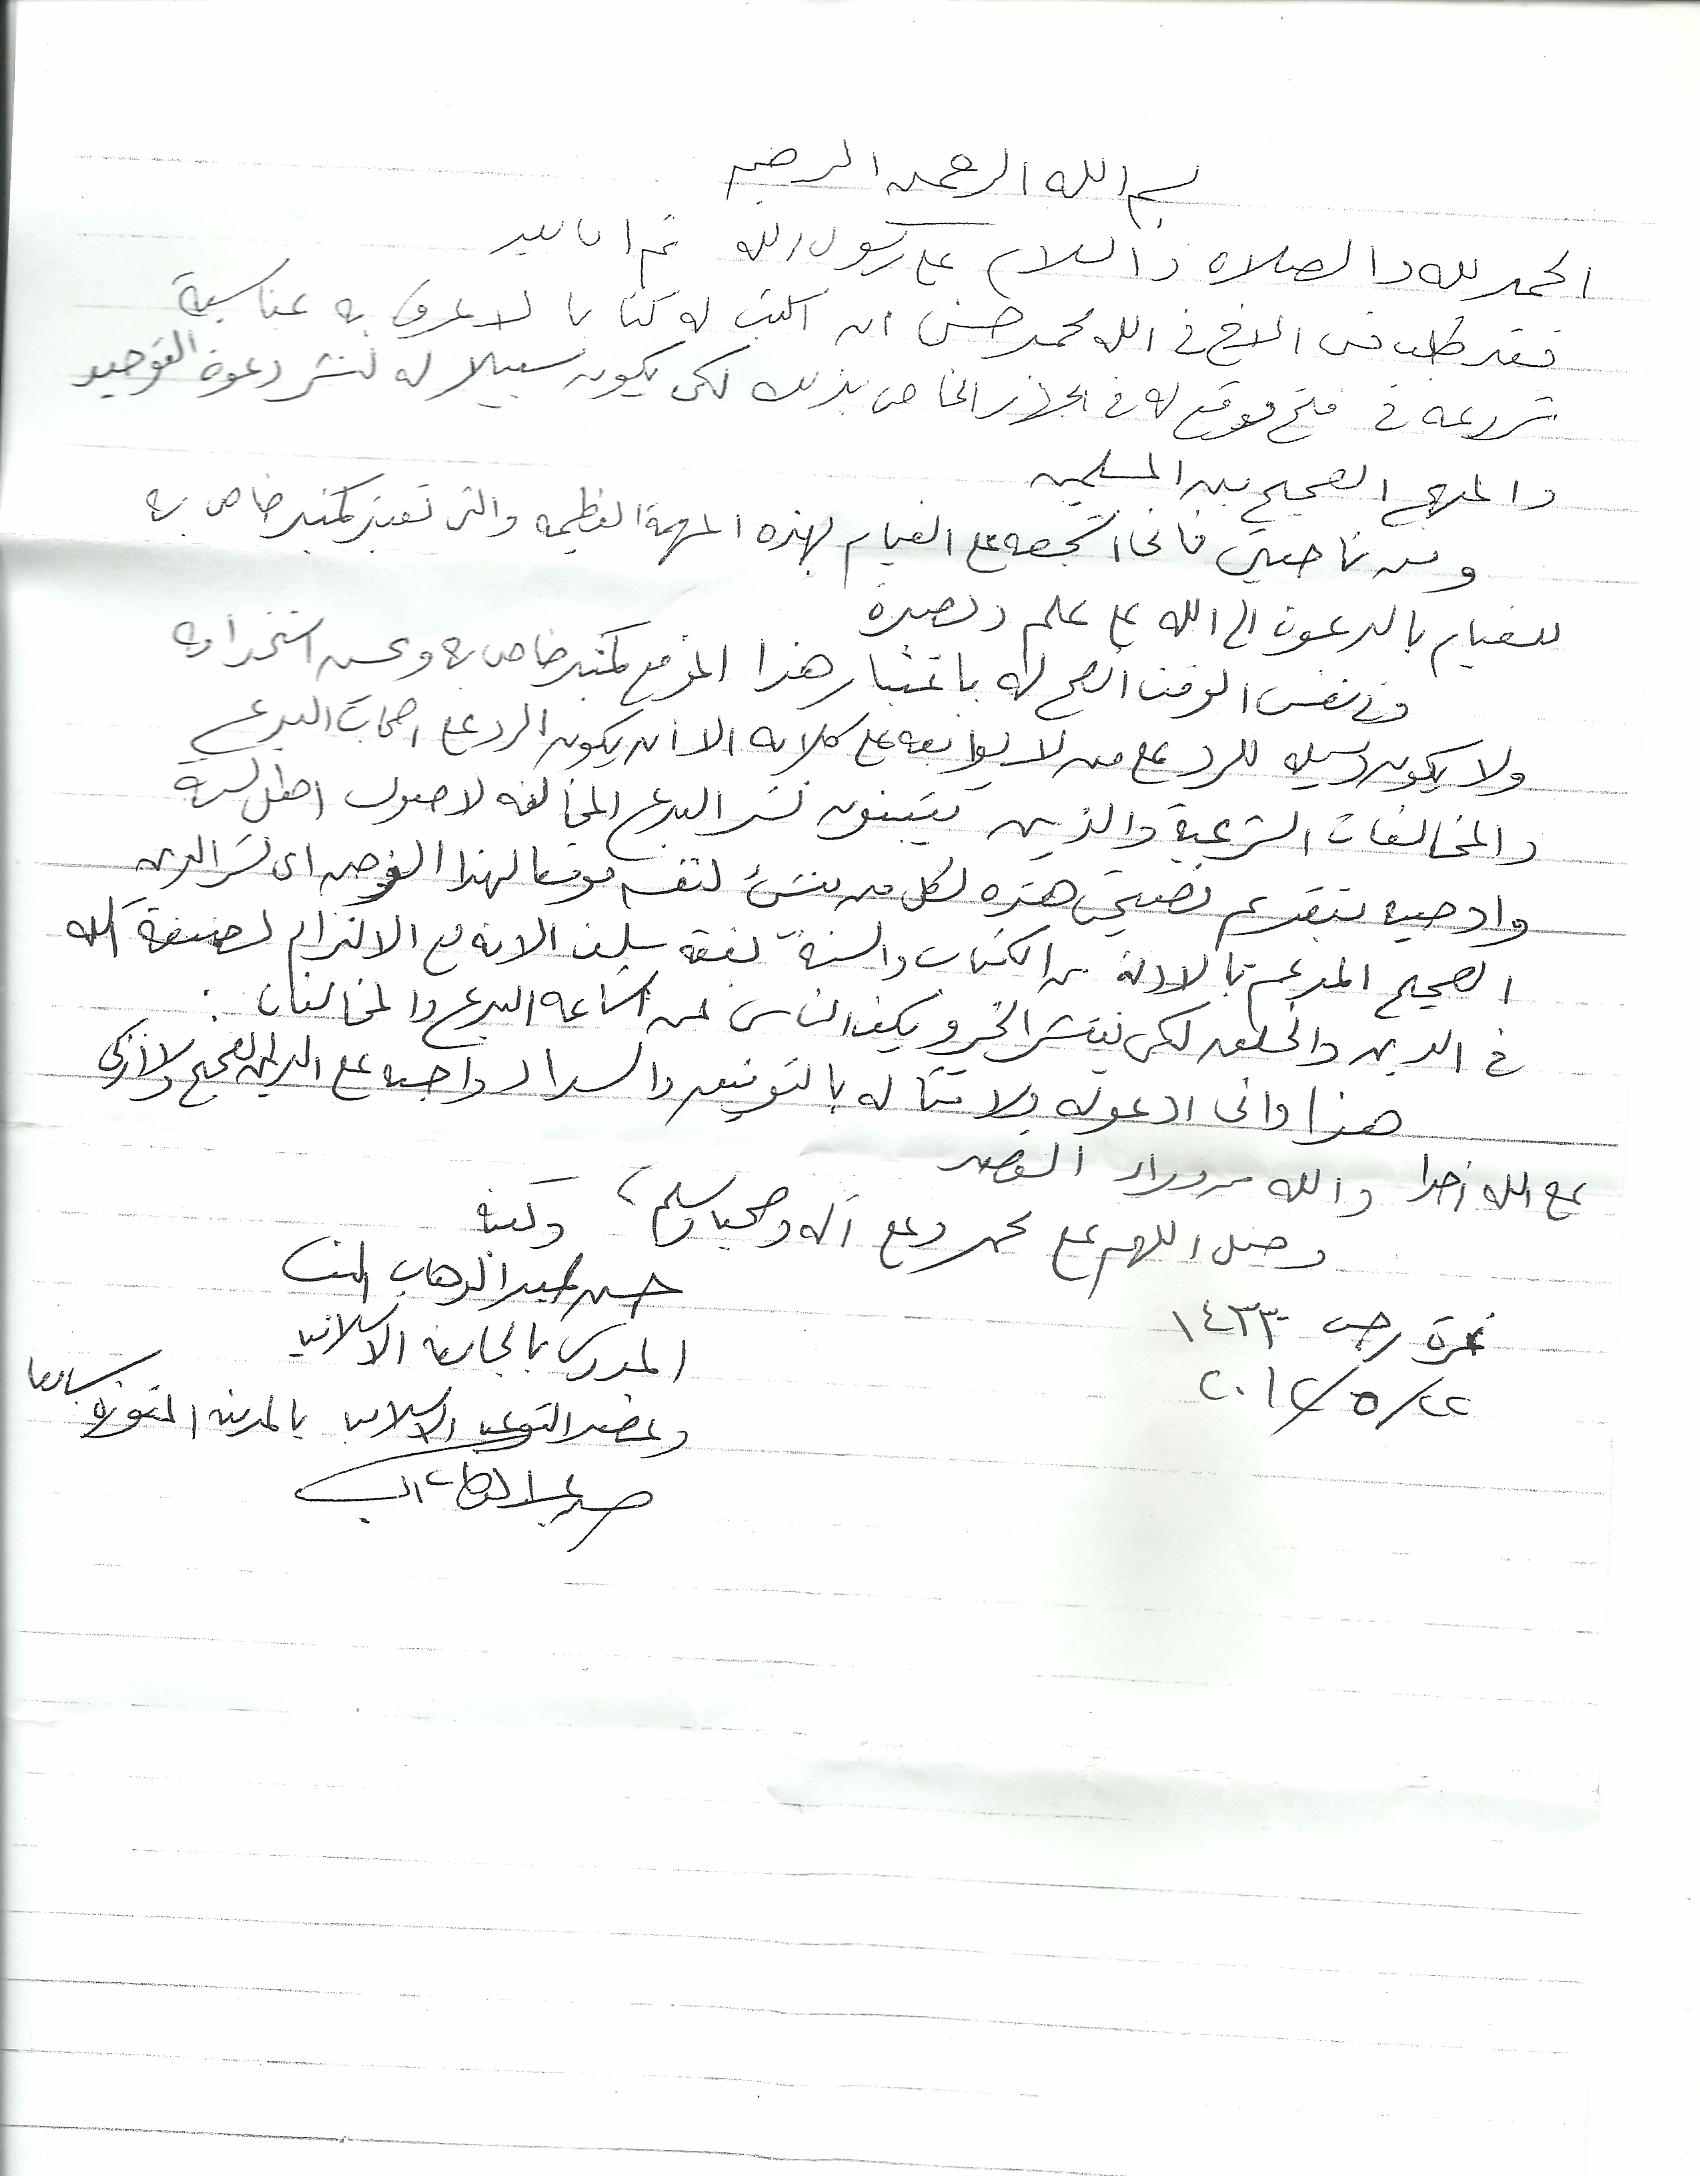 بسم الله الرحمن الرحيم
الحمد لله والصلاة والسلام على رسول الله ثم اما بعد
فقد طلب منى الاخ في الله محمد حسنى ان اكتب له كتابا لاعرف به بمناسبة
شروعه في فتح موقع له في الجهاز الخاص بذلك لكى يكون سبيلا له لنشر دعوة التوحيد
والمنهج الصحيح بين المسلمين
ومن ناحيتى فانى اشجعه على القيام بهذه المهمة العظيمه والتى تعتبر كمنبر خاص به
للقيام بالدعوة الى الله على علم وبصيرة
وفي نفس الوقت انصح له باعتبار هذا الموقع كمنبر خاص به وحسن استخدامه
ولا يكون وسيله للرد على من لا يوافقه على كلامه الا ان يكون الرد على اصحاب البدع
والمخالفات الشرعية والذين يتبنون نشر البدع المخالفه لاصول اهل السنة
واوصيه بتقديم نصيحتى هذه لكل من ينشئ لنفسه موقعا لهذا الغرض اى نشر الدين
الصحيح المدعم بالادلة من الكتاب والسنة بفقه سلف الامة مع الالتزام
في الدين والخلق لكى ينتشر الخير ويكف الناس عن اشاعة البدع والمخالفات .
هذا وانى ادعو له ولامثاله بالتوفيق والسداد واحسبه على الصحيح ولا ازكى
على الله احدا والله من وراء القصد
وصل اللهم على محمد وعلى آله وصحبه وسلم ، وكتبه
حسن عبد الوهاب البنا
غرة رجب ١٤٣٣
المدرس بالجامعة الاسلاميه
٢٠١٢/٥/٢٢
وعضو التوعيه الاسلاميه بالمدينه المنوره سابقا
حسن عبد الوهاب